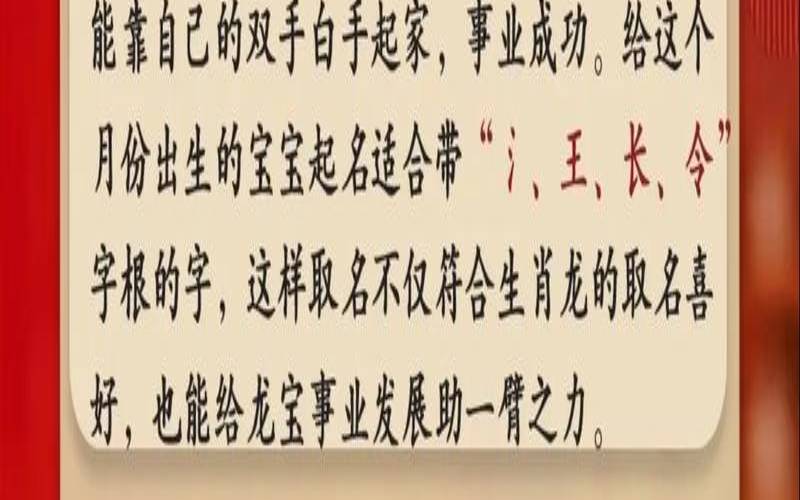 能靠自己的双手白手起家，事业成功。给这个
月份出生的宝宝起名适合带“氵、王、长、令”
字根的字，这样取名不仅符合生肖龙的取名喜
好，也能给龙宝事业发展助一臂之力。